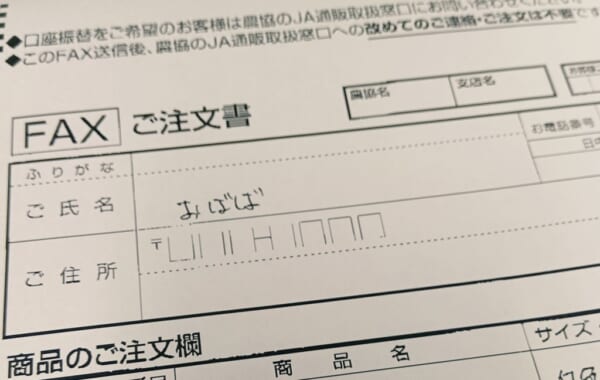 ◆口座振替をご希望のお客様は農協のJA通販取扱窓口にお問い合わせください
◆このFAX送信後、農協のJA通販取扱窓口への改めてのご連絡・ご注文は不要です
農協名 支店名
FAX ご注文書
お電話番号
ふりがな
ご氏名 おばば
ご住所 〒
商品のご注文欄
商品名 サイズ・